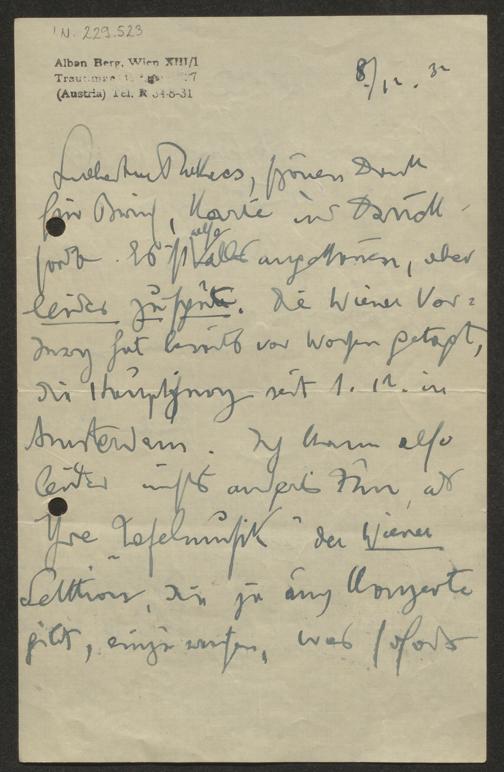 N. 229.523
Alban Berg, Wien XIII/1
(Austria) Tel. R 34-8-31
8/12. 32
Lieber Herr, schönen Dank
für Brief, Karte und
Es ist also alles angekommen, aber
leider zu spät. Die Wiener Vor=
Jury hat bereits vor Wochen getagt,
die Hauptjury seit 1. 12. in
Amsterdam. Ich kann also
leider nichts anderes tun, als
Ihre "Tafelmusik" der Wiener
Sektion, die ja auch Konzerte
gibt, einzureichen, was sofort